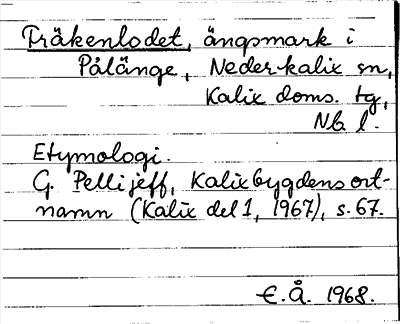 Fräkenlodet, ängsmark i
Pålänge, Nederkalix sn,
Kalix doms. tg,
Nb. l.
Etymologi.
G. Pellijeff, Kalixbygdens ort-
namn (Kalix del 1, 1967), s. 67.
E. Å. 1968.